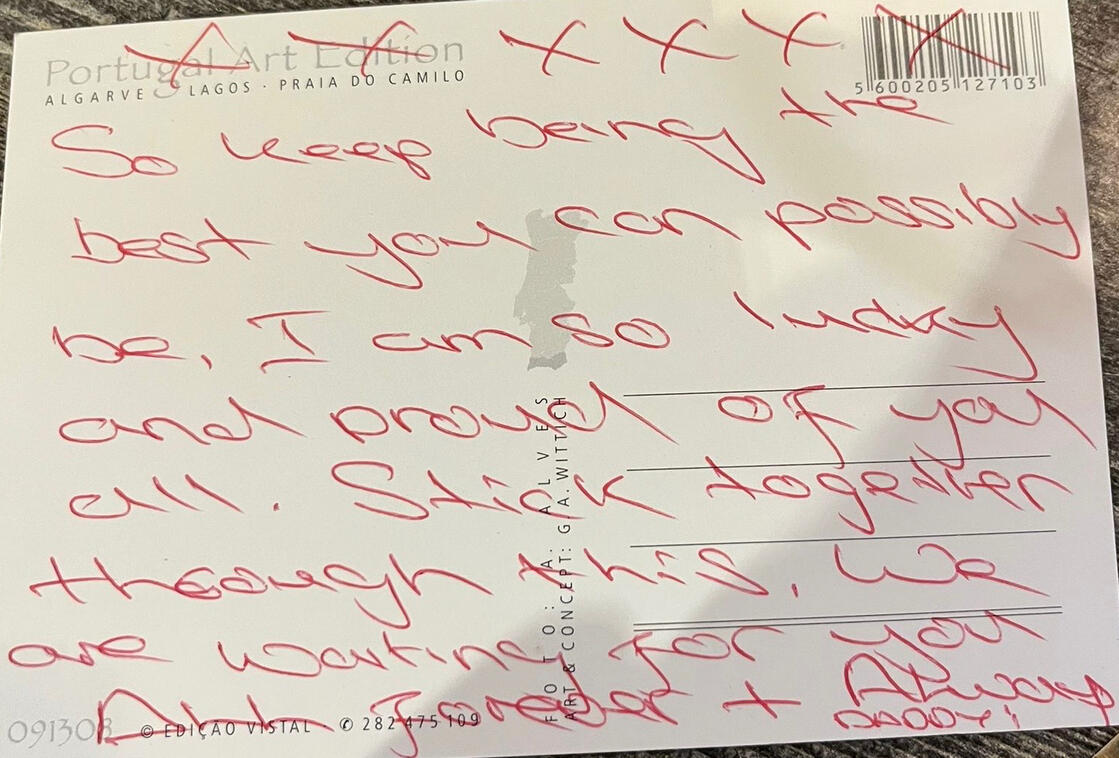 Portugal Art Edition
ALGARVE · LAGOS · PRAIA DO CAMILO
X X X X X X
5 600205 127103
So keep being the
best you can possibly
be, I am so lucky
and proud of you
all. Stick together
through this. We
are waiting for you
Forever + Always
FOTO: A. GALVES
ART & CONCEPT: G A. WITTICH
091308
© EDIÇÃO VISTAL · ✆ 282 475 109